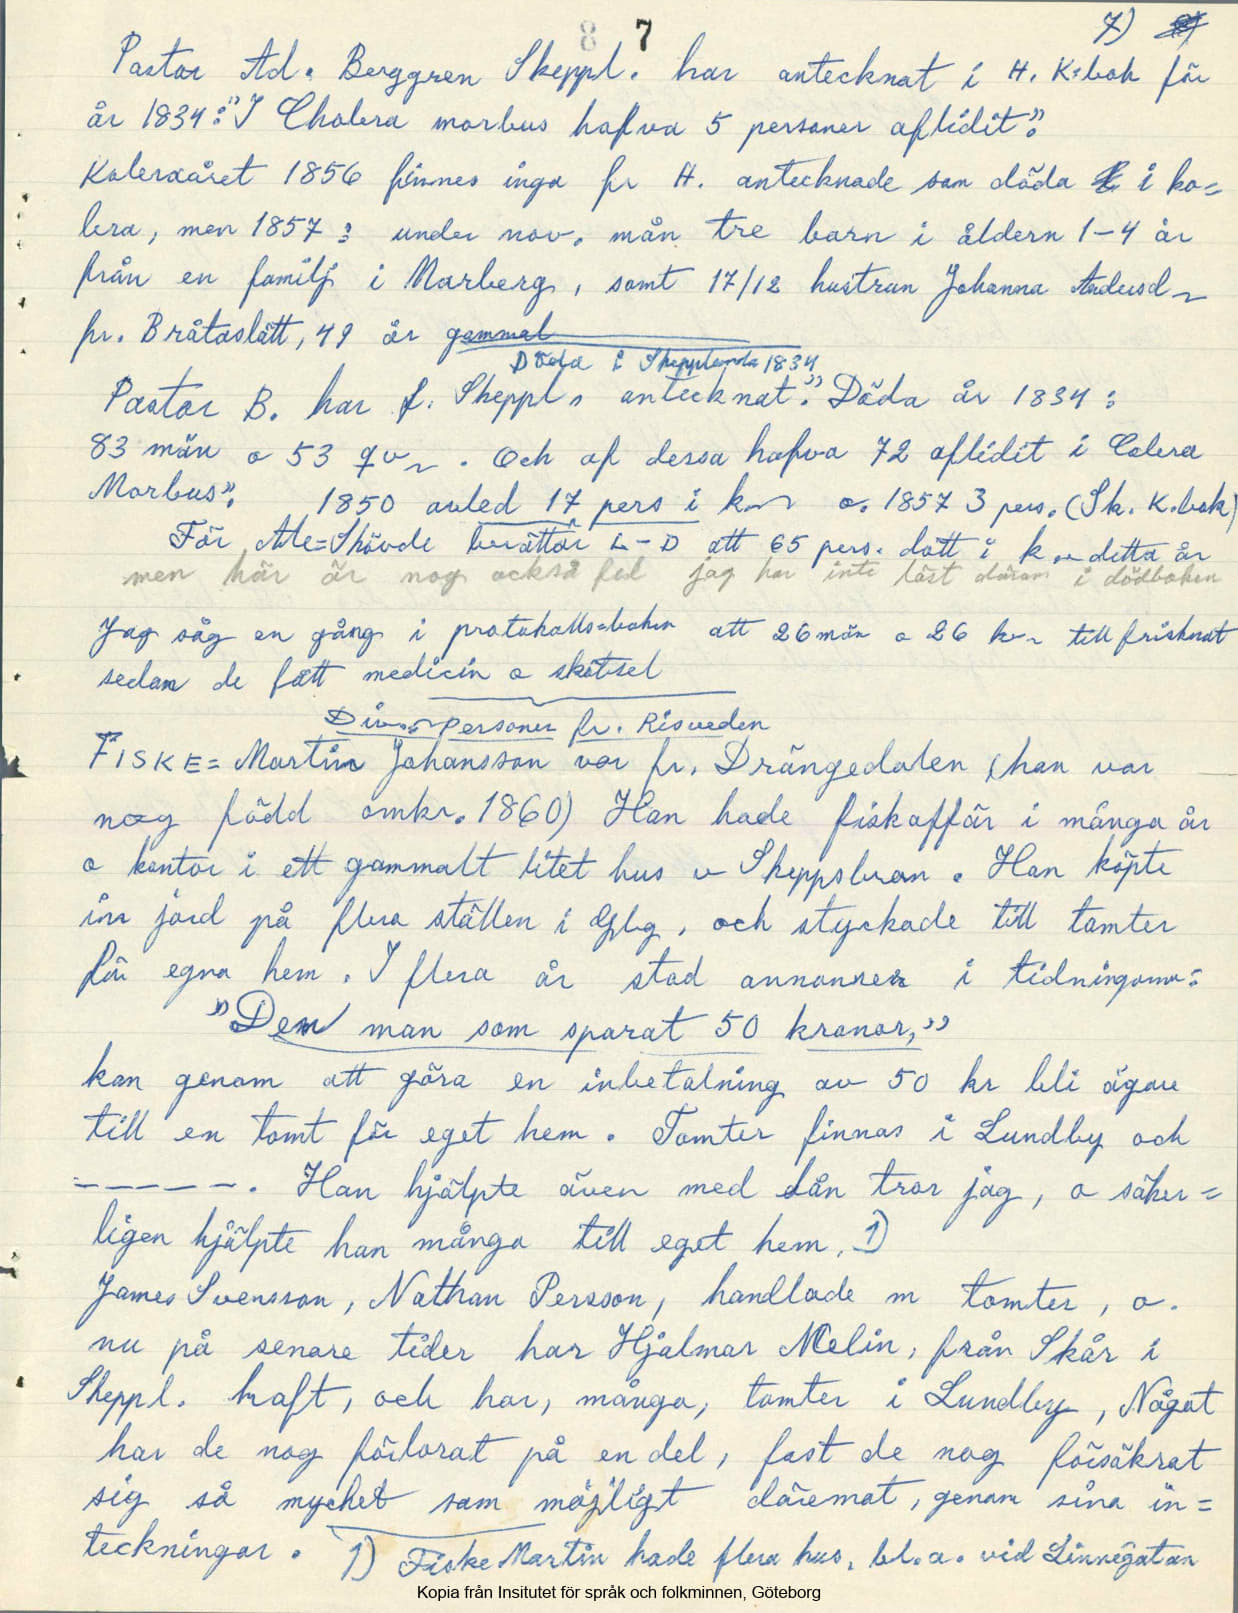 8 7 7)
Pastor Ad. Berggren Skeppl. har antecknat i H. K=bok för
år 1834: "I Cholera morbus hafva 5 personer aflidit".
Koleraåret 1856 finnes inga fr H. antecknade som döda i ko=
lera, men 1857: under nov. mån tre barn i åldern 1-4 år
från en familj i Marberg, samt 17/12 hustrun Johanna Andersd~
fr. Bråtaslätt, 49 år gammal
Döda i Skepplanda 1834
Pastor B. har f. Skeppl. antecknat: "Döda år 1834:
83 män o 53 qv~. Och af dessa hafva 72 aflidit i Colera
Morbus". 1850 avled 17 pers i k~ o. 1857 3 pers. (Sk. K.bok)
För Ale=Skövde berättar L-D att 65 pers. dött i k~ detta år
men här är nog också fel jag har inte läst därom i dödboken
Jag såg en gång i protokolls=boken att 26 män o 26 kv~ tillfrisknat
sedan de fått medicin o skötsel
Div. personer fr. Risveden
FISKE=Martin Johansson var fr. Drängedalen (han var
nog född omkr. 1860) Han hade fiskaffär i många år
o kontor i ett gammalt litet hus v Skeppsbron. Han köpte
in jord på flera ställen i Gbg, och styckade till tomter
för egna hem. I flera år stod annonser i tidningarna:
"Den man som sparat 50 kronor,"
kan genom att göra en inbetalning av 50 kr bli ägare
till en tomt för eget hem. Tomter finnas i Lundby och
— — — — —. Han hjälpte även med lån tror jag, o säker=
ligen hjälpte han många till eget hem. 1)
James Svensson, Nathan Persson, handlade m tomter, o.
nu på senare tider har Hjalmar Melin, från Skår i
Skeppl. haft, och har, många, tomter i Lundby, Något
har de nog förlorat på en del, fast de nog försäkrat
sig så mycket som möjligt däremot, genom sina in=
teckningar. 1) Fiske Martin hade flera hus, bl.a. vid Linnégatan
Kopia från Insitutet för språk och folkminnen, Göteborg